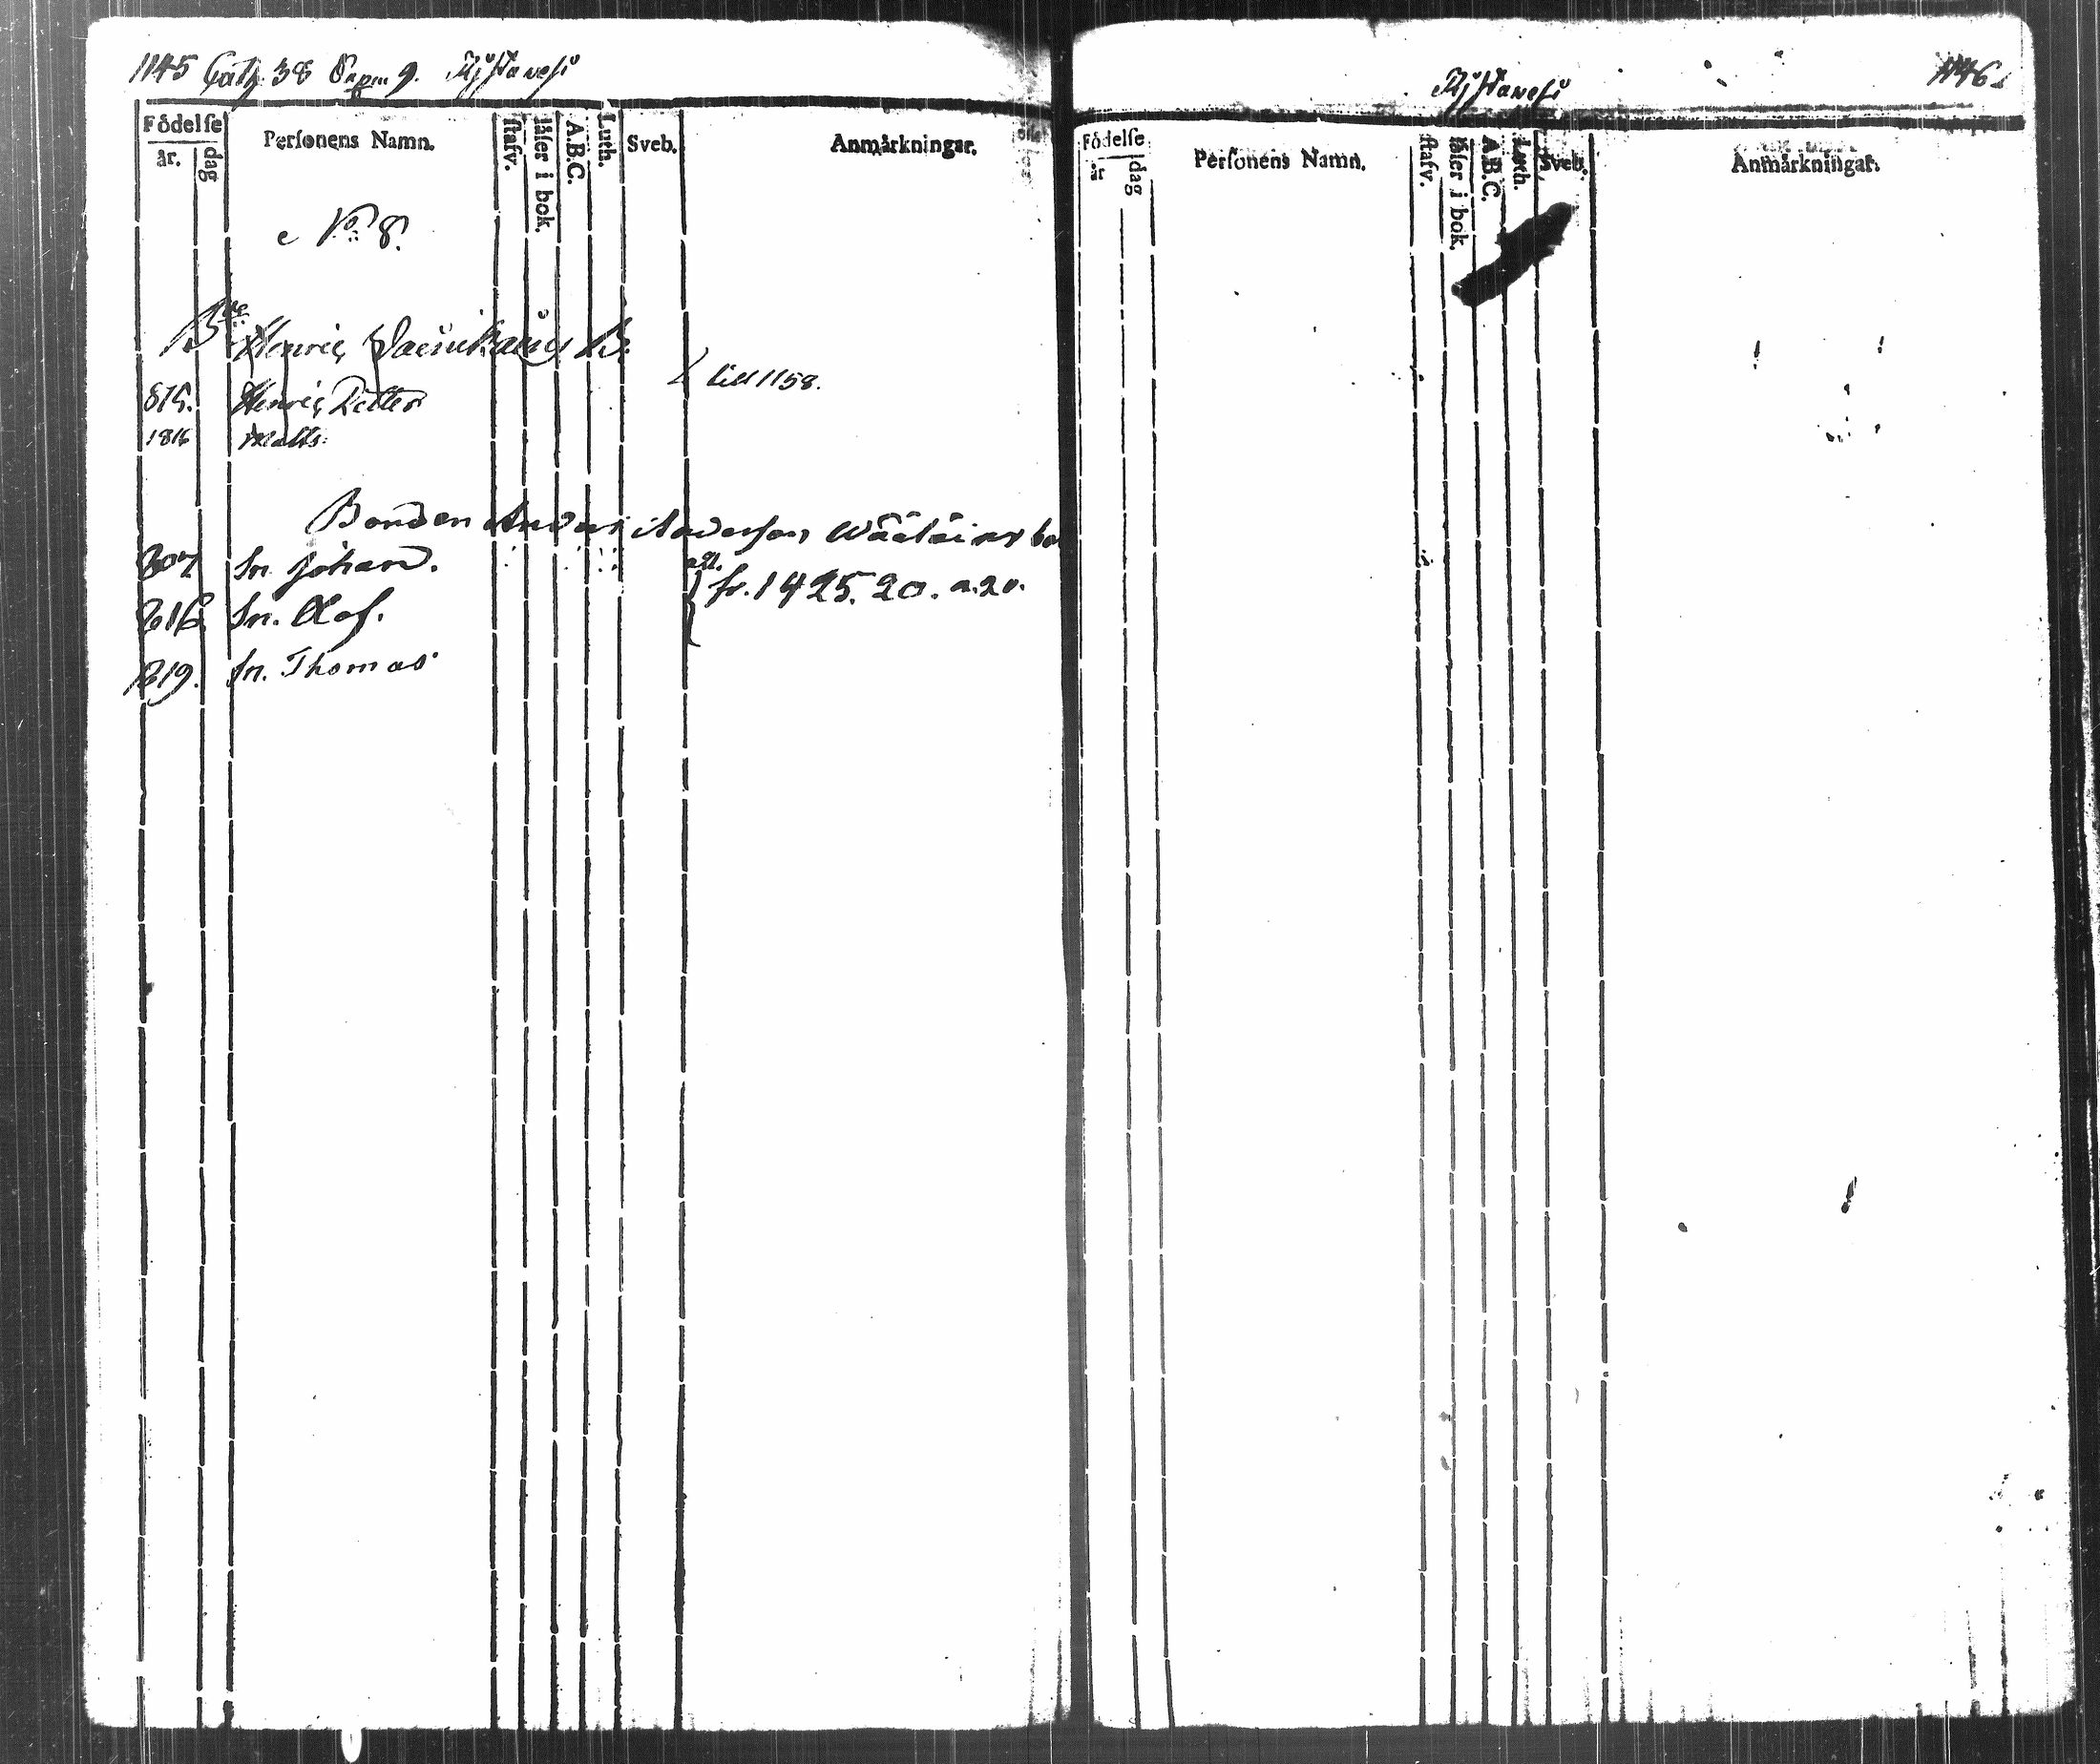 1145 Catq. 38 Sapm 9. Tyjstavesi
Födelse
år. dag
Personens Namn.
stafv.
läser i bok.
A.B.C.
Luth.
Sveb.
Anmärkningar.
N:o 8.
Henric B.
till 1158.
819. Henric Petter
1816 Matts
Bonden Anders Andersson Wäätäinens
807 Sn. Johan.
fr. 1425. 20. a. 20.
816 Sn. Olof.
1819. Sn. Thomas
Tyjstavesi
1146
Födelse
år dag
Personens Namn.
stafv.
läser i bok.
A.B.C.
Luth.
Sveb.
Anmärkningar.